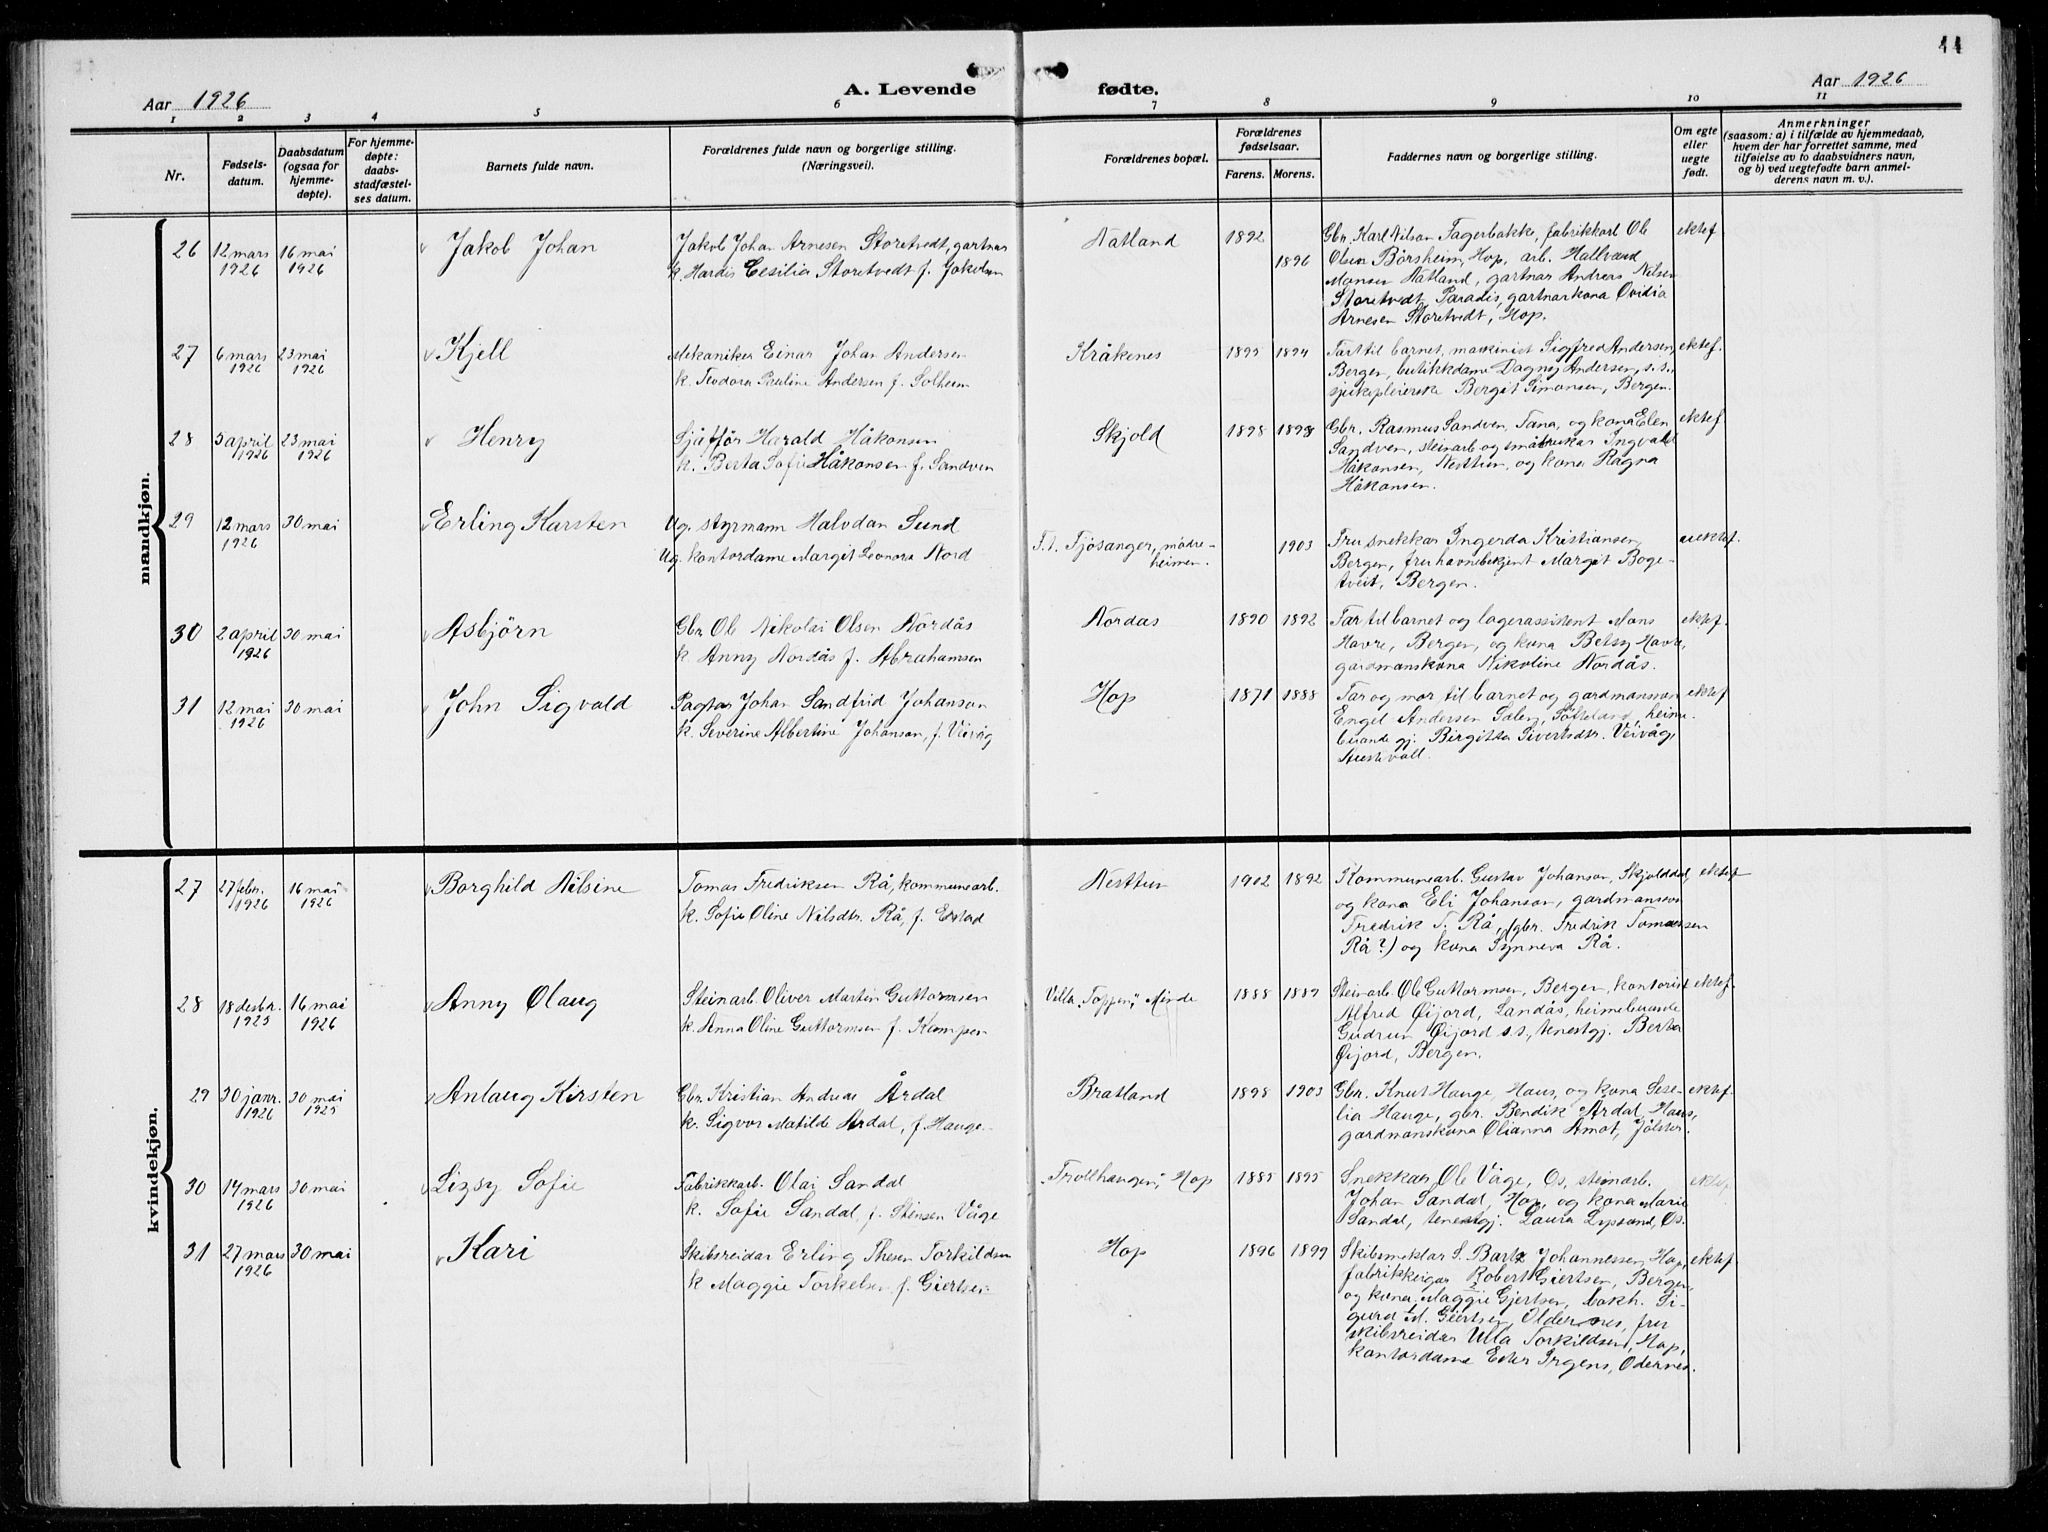 11
Aar 1926
A. Levende
fødte.
Aar 1926
1 2 3 4 5 6 7 8 9 10 11
Nr.
Fødsels-
datum.
Daabsdatum
(ogsaa for
hjemme-
døpte).
For hjemme-
døpte:
daabs-
stadfæstel-
ses datum.
Barnets fulde navn.
Forældrenes fulde navn og borgerlige stilling.
(Næringsvei).
Forældrenes bopæl.
Forældrenes
fødselsaar.
Farens. Morens.
Faddernes navn og borgerlige stilling.
Om egte
eller
uegte
født.
Anmerkninger
(saasom: a) i tilfælde av hjemmedaab,
hvem der har forrettet samme, med
tilføielse av to daabsvidners navn,
og b) ved uegtefødte barn anmel-
derens navn m. v.).
mandkjøn.
26
12 mars
1926
16 mai
1926
Jakob Johan
Jakob Johan Arnesen Storetvedt, gartnar
k. Hardis Cesilie Storetvedt f. Jakobsen
Natland
1892
1896
Gbr. Karl Nilson Fagerbakke, fabrikkarb Ob
Olsen Börsheim, Hop, arb. Hallvard
Monsen Natland, gartnar Andreas Nilsen
Storetvedt, Paradis, gartnarkona Ovidia
Arnesen Storetvedt, Hop.
ektef.
27
6 mars
1926
23 mai
1926
Kjell
Mekaniker Einar Johan Andersen
k. Teodora Pauline Andersen f. Solheim
Kråkenes
1895 1894
Far til barnet, maskinist Sigfred Andersen,
Bergen, butikkdame Dagny Andersen, s.s.,
sjukepleierske Bergit Simonsen, Bergen.
ektef.
28
5 april
1926
23 mai
1926
Henry
Sjåffør Harald Håkonsen
k. Berta Sofie Håkonsen f. Sandven
Skjold
1898 1898
Gbr. Rasmus Sandven, Fana, og kona Elen
Sandven, steinarb og småbrukar Ingvald
Håkonsen, Nesttun, og kona Ragna
Håkonsen.
ektef
29
12 mars
1926
30 mai
Erling Karsten
Ug. styrmann Halvdan Sund
Ug. kontordame Margit Leonora Nord
F.t. Fjösanger, mødre-
heimen.
1903
Fru snekkar Ingerda Kristiansen,
Bergen, fru havnebekjent Margit Boge-
tveit, Bergen.
uektef.
30
2 april
1926
30 mai
Asbjörn
Gbr. Ole Nikolai Olsen Nordås
k. Anny Nordås f. Abrahamsen
Nordås
1890 1892
Far til barnet og lagerassistent Mons
Havre, Bergen, og kona Betsy Havre,
gardmanskona Nikoline Nordås.
ektef.
31
12 mai
1926
30 mai
John Sigvald
Johan Sandfrid Johanson
k. Severine Albertine Johanson, f. Veivåg
Hop
1871 1888
Far og mor til barnet og gardmannen
Engel Andersen Salen, Söfteland, heime-
buande gj. Birgitta Sivertsdtr. Veivåg,
Austevoll.
ektef
kvindekjøn.
27
27 febr.
1926
16 mai
1926
Borghild Nilsine
Tomas Fredriksen Rå, kommunearb.
k. Sofie Oline Nilsdtr. Rå, f.
Nesttun
1902 1892
Kommunearb. Gustav Johanson, Skjolddal,
og kona Eli Johanson, gardmannen
Fredrik T. Rå, (gbr. Fredrik Tomassen
Rå?) og kona Synneva Rå.
ektef
28
18 desbr.
1925
16 mai
1926
Anny Olaug
Steinarb. Oliver Martin Guttormsen
k. Anna Oline Guttormsen f. Kampen
Villa "Toppen", Minde
1888 1889
Steinarb. Ole Guttormsen, Bergen, kontorist
Alfred Øijord, Landås, heimebuande
Gudrun Øijord s.s., tenestgj. Berta
Øijord, Bergen.
ektef.
29
30 janr.
1926
30 mai
1925
Anlaug Kirsten
Gbr. Kristian Andreas Årdal
k. Sigvor Matilde Årdal, f. Hauge
Bratland
1898 1903
Gbr. Knut Hauge, Haus, og kona Sese-
lia Hauge, gbr. Bendik Årdal, Haus,
gardmanskona Olianna Åmot, Jölster.
ektef
30
14 mars
1926
30 mai
Lizsy Sofie
Fabrikkarb. Olai Sandal
k. Sofie Sandal, f. Stensen Våge
"Trollhaugen", Hop
1885 1895
Snekkar Ole Våge, Os, steinarb.
Johan Sandal, Hop, og kona Marie
Sandal, tenestgj. Laura Lysand, Os.
ektef
31
27 mars
1926
30 mai
Kari
Skibsreidar Erling Thesen Torkildsen
k Maggie Torkelsen f. Giertsen
Hop
1896 1899
Skibsmeklar S. Bartz Johannessen, Hop,
fabrikkeigar Robert Giertsen, Bergen,
og kona Maggie Gjertsen, bokh. Si-
gurd M. Giertsen, Oldernes, fru
skibsreidar Ulla Torkildsen, Hop,
kontordame Ester Irgens, Odernes.
ektef.